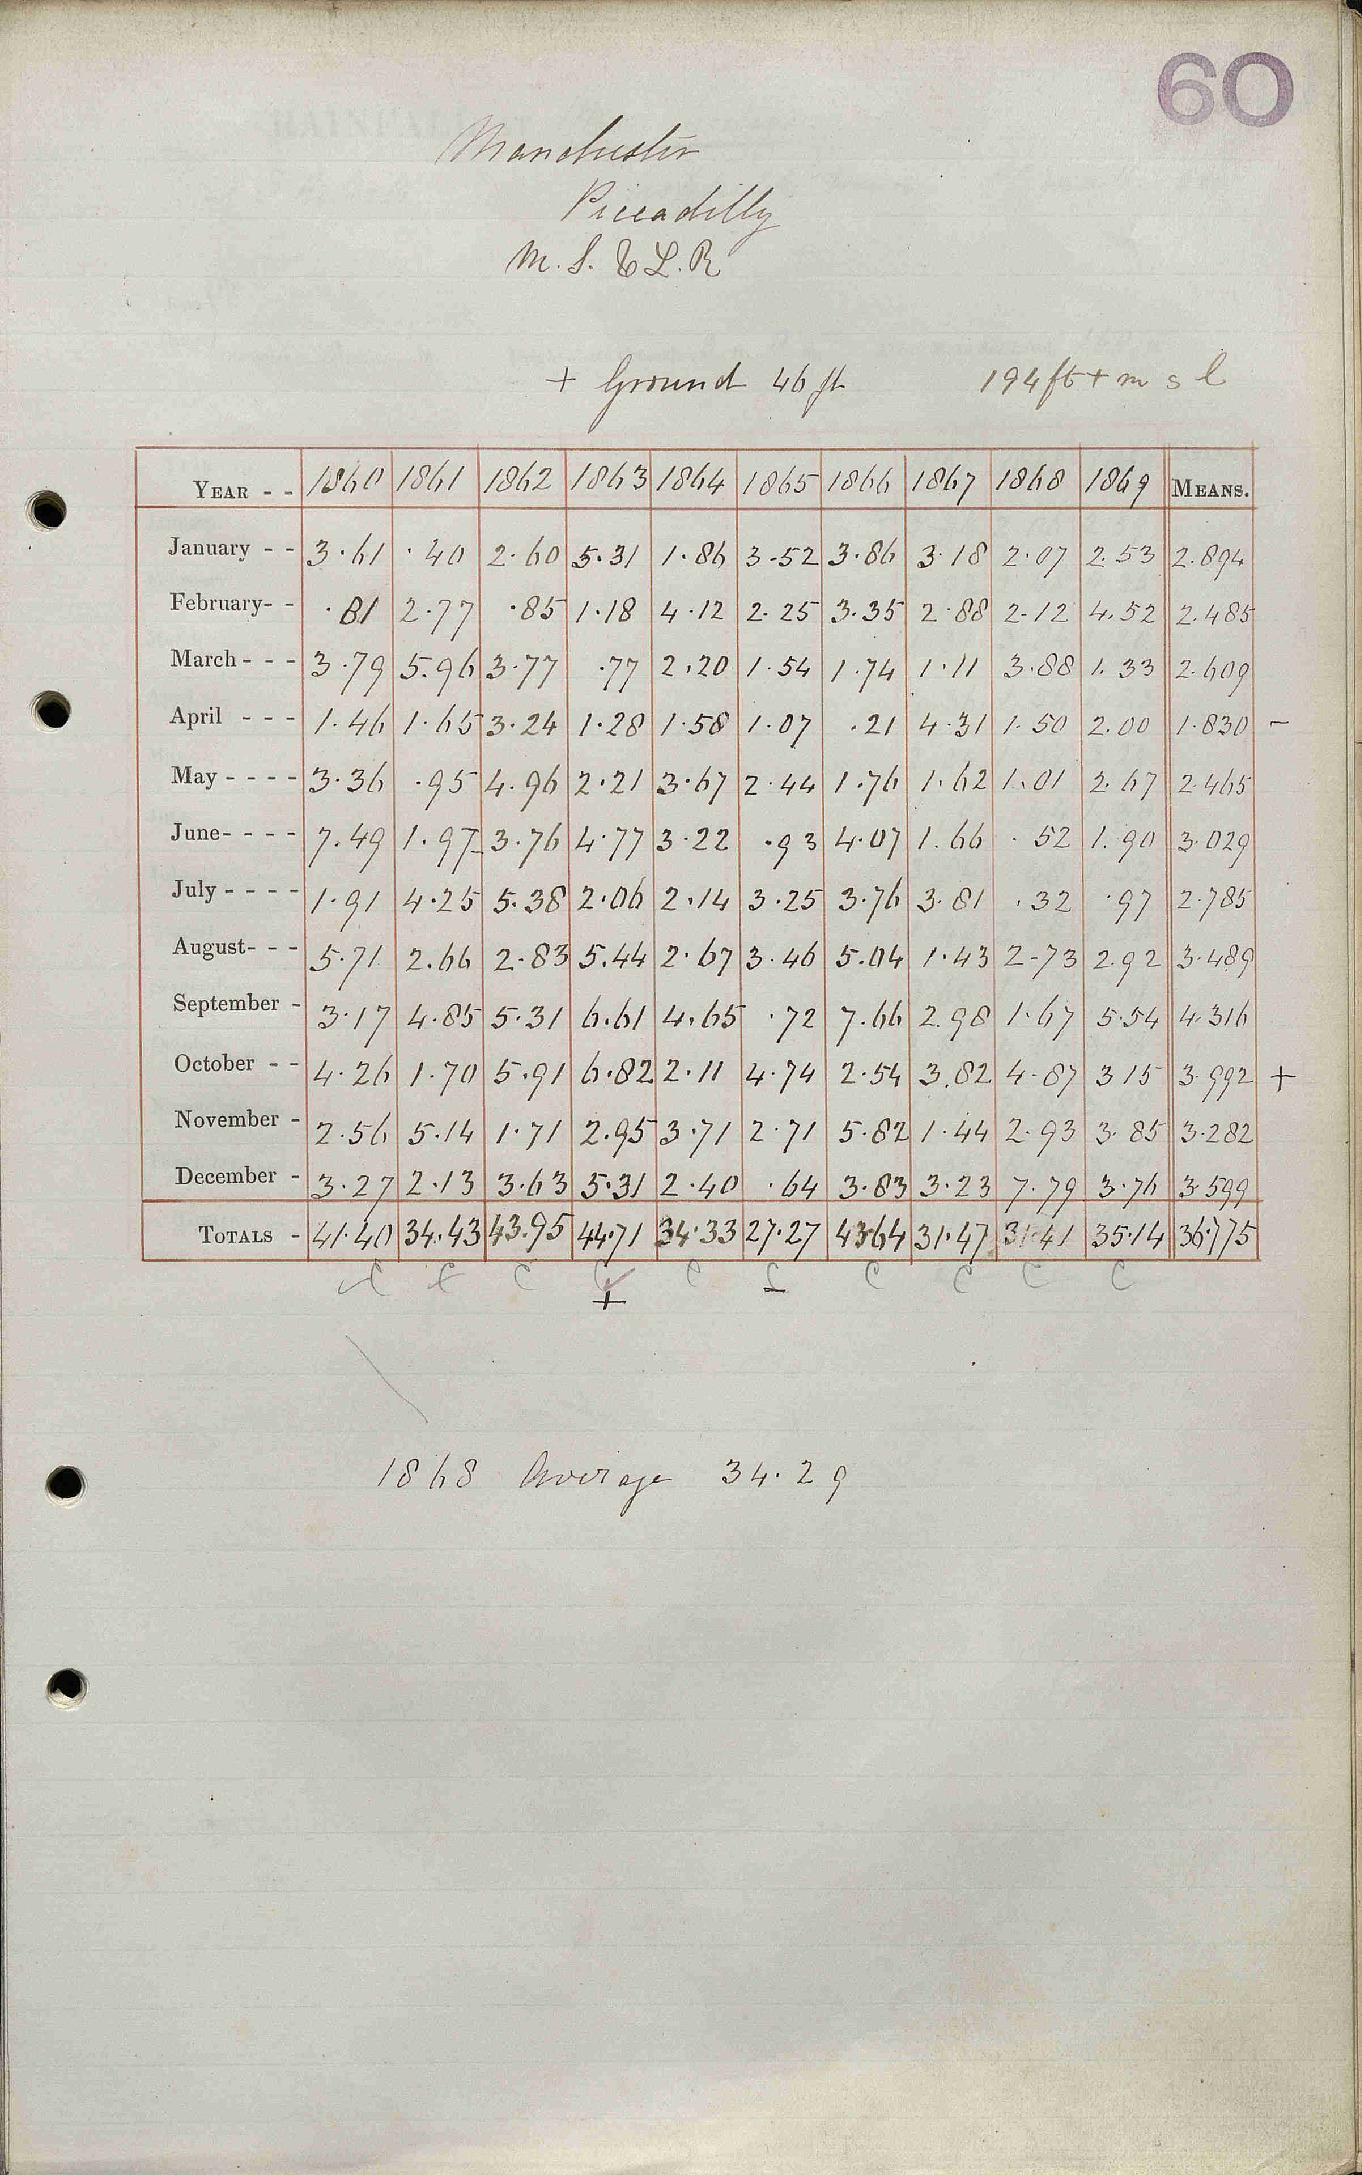 60
Manchester
Piccadilly
M. S. & L. R
+ Ground 46 ft 194 ft + m s l
YEAR - - 1860 1861 1862 1863 1864 1865 1866 1867 1868 1869 MEANS.
January - - 3.61 .40 2.60 5.31 1.86 3.52 3.86 3.18 2.07 2.53 2.894
February- - .81 2.77 .85 1.18 4.12 2.25 3.35 2.88 2.12 4.52 2.485
March - - - 3.79 5.96 3.77 .77 2.20 1.54 1.74 1.11 3.88 1.33 2.609
April - - - 1.46 1.65 3.24 1.28 1.58 1.07 .21 4.31 1.50 2.00 1.830 -
May - - - - 3.36 .95 4.96 2.21 3.67 2.44 1.76 1.62 1.01 2.67 2.465
June- - - - 7.49 1.97 3.76 4.77 3.22 .93 4.07 1.66 .52 1.90 3.029
July - - - - 1.91 4.25 5.38 2.06 2.14 3.25 3.76 3.81 .32 .97 2.785
August- - - 5.71 2.66 2.83 5.44 2.67 3.46 5.04 1.43 2.73 2.92 3.489
September - 3.17 4.85 5.31 6.61 4.65 .72 7.66 2.98 1.67 5.54 4.316
October - - 4.26 1.70 5.91 6.82 2.11 4.74 2.54 3.82 4.87 3 15 3.992 +
November - 2.56 5.14 1.71 2.95 3.71 2.71 5.82 1.44 2.93 3.85 3.282
December - 3.27 2.13 3.63 5.31 2.40 .64 3.83 3.23 7.79 3.76 3.599
TOTALS - 41.40 34.43 43.95 44.71 34.33 27.27 43.64 31.47 31.41 35.14 36.775
C C C C C C C C C C
+ -
1868 Average 34.29